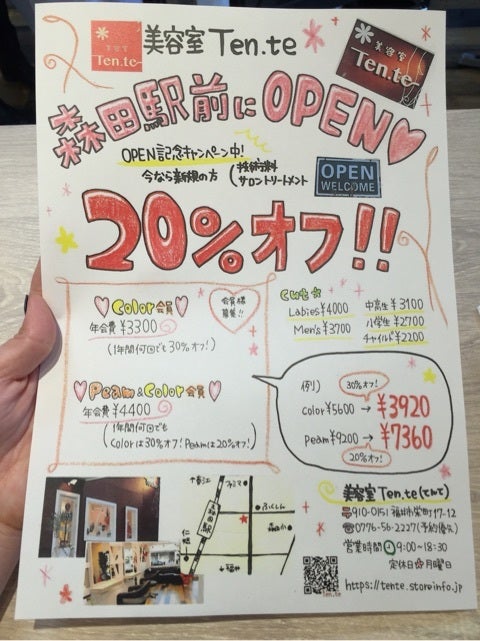 美容室 Ten.te
美容室
Ten.te
美容室
Ten.te
森田駅前にOPEN♡
OPEN記念キャンペーン中!
今なら新規の方(技術料
サロントリートメント
OPEN
WELCOME
20%オフ!!
Color会員
年会費 ¥3300
(1年間何回でも30%オフ!)
会員様
募集!!
Peam&Color会員
年会費 ¥4400
(1年間何回でも
Colorは30%オフ!Peamは20%オフ!)
Cut☆
Ladies ¥4000
Men's ¥3700
中高生 ¥3100
小学生 ¥2700
チャイルド ¥2200
例)
30%オフ!
color¥5600 → ¥3920
peam¥9200 → ¥7360
20%オフ!
↑春江
ファミマ
森田駅
ふくしん
仁愛
↓福井
美容室 Ten.te(てんて)
〒910-0151 福井市栄町17-12
☎0776-56-2227(予約優先)
営業時間 9:00~18:30
定休日 月曜日
https://tente.storeinfo.jp
Ten.te